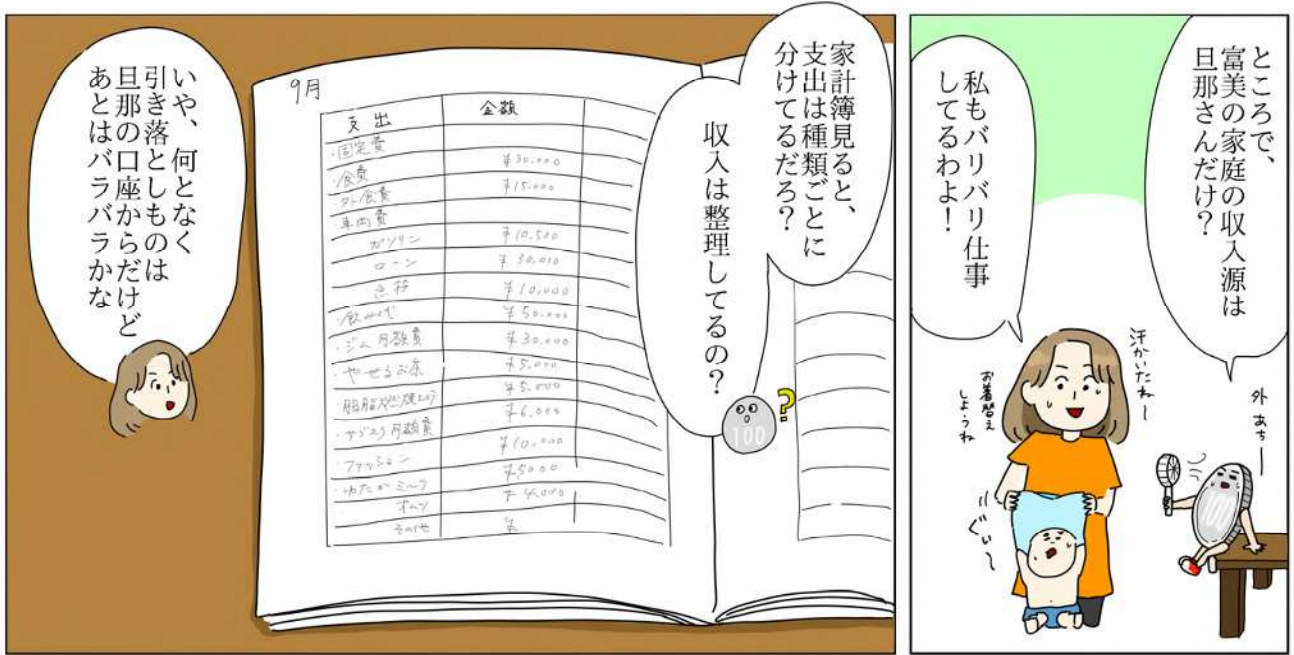 ところで、
富美の家庭の収入源は
旦那さんだけ？
私もバリバリ仕事
してるわよ！
汗かいたね〜
お着替え
しようね
外 あち〜
ぐい〜
100
家計簿見ると、
支出は種類ごとに
分けてるだろ？
収入は整理してるの？
?
100
9月
支出 金額
・固定費
・食費 ¥30,000
・外食費 ¥15,000
・車両費
ガソリン ¥10,500
ローン ¥30,000
¥10,000
・飲み代 ¥50,000
・ジム月額費 ¥30,000
・やせるお茶 ¥5,000
¥5,000
・サブスク月額費 ¥6,000
・ファッション ¥10,000
・ゆたか ミルク ¥5,000
オムツ ¥4,000
その他
いや、何となく
引き落としものは
旦那の口座からだけど
あとはバラバラかな